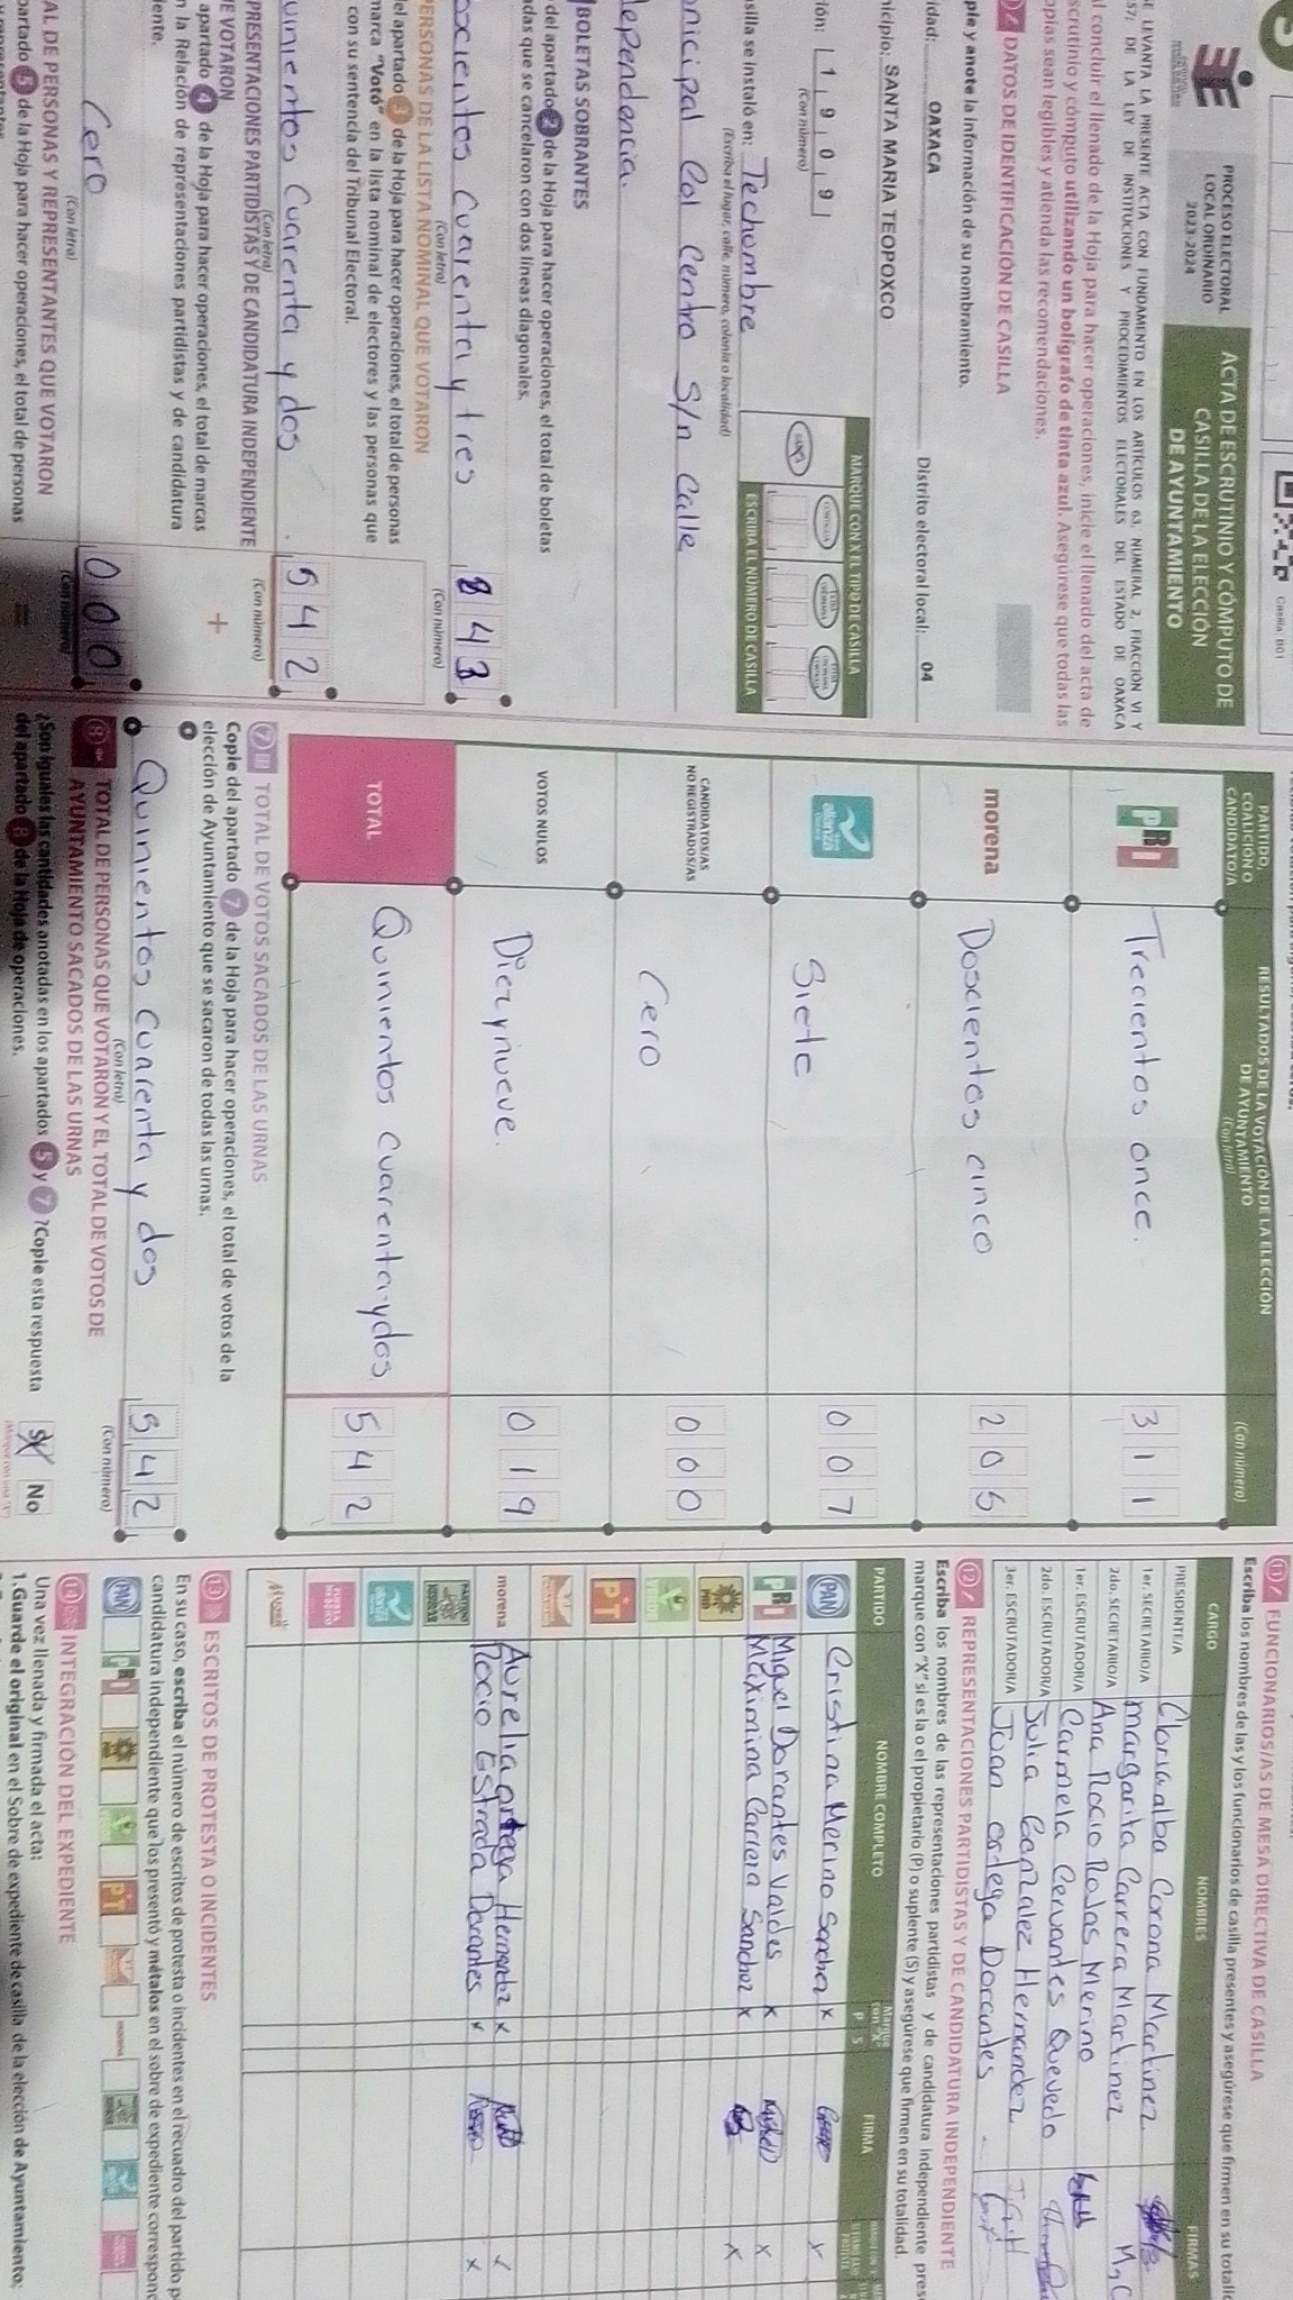 Casilla: B01
PROCESO ELECTORAL
LOCAL ORDINARIO
2023-2024
ACTA DE ESCRUTINIO Y CÓMPUTO DE
CASILLA DE LA ELECCIÓN
DE AYUNTAMIENTO
SE LEVANTA LA PRESENTE ACTA CON FUNDAMENTO EN LOS ARTÍCULOS 63, NUMERAL 2, FRACCIÓN VI Y
57; DE LA LEY DE INSTITUCIONES Y PROCEDIMIENTOS ELECTORALES DEL ESTADO DE OAXACA
al concluir el llenado de la Hoja para hacer operaciones, inicie el llenado del acta de
scrutinio y cómputo utilizando un bolígrafo de tinta azul. Asegúrese que todas las
opias sean legibles y atienda las recomendaciones.
DATOS DE IDENTIFICACIÓN DE CASILLA
ple y anote la información de su nombramiento.
idad: OAXACA Distrito electoral local: 04
nicipio: SANTA MARIA TEOPOXCO
ión: 1 9 0 9
(Con número)
MARQUE CON X EL TIPO DE CASILLA
ESCRIBA EL NÚMERO DE CASILLA
asilla se instaló en: Techombre
(Escriba el lugar, calle, número, colonia o localidad)
onicipal Col Centro S/n Calle
dependencia.
BOLETAS SOBRANTES
del apartado 2 de la Hoja para hacer operaciones, el total de boletas
adas que se cancelaron con dos líneas diagonales.
ocientos Cuarenta y tres 8 4 3
(Con letra) (Con número)
PERSONAS DE LA LISTA NOMINAL QUE VOTARON
del apartado 3 de la Hoja para hacer operaciones, el total de personas
marca "Votó" en la lista nominal de electores y las personas que
con su sentencia del Tribunal Electoral.
uinientos Cuarenta y dos 5 4 2
(Con letra) (Con número)
PRESENTACIONES PARTIDISTAS Y DE CANDIDATURA INDEPENDIENTE
E VOTARON
apartado 4 de la Hoja para hacer operaciones, el total de marcas
n la Relación de representaciones partidistas y de candidatura
iente.
+
Cero 0 0 0
(Con letra) (Con número)
AL DE PERSONAS Y REPRESENTANTES QUE VOTARON
partado 5 de la Hoja para hacer operaciones, el total de personas
=
PARTIDO, COALICIÓN O CANDIDATO/A
RESULTADOS DE LA VOTACIÓN DE LA ELECCIÓN
DE AYUNTAMIENTO
(Con letra) (Con número)
PRI Trecientos once. 3 1 1
morena Doscientos cinco 2 0 5
nueva alianza Siete 0 0 7
CANDIDATOS/AS NO REGISTRADOS/AS Cero 0 0 0
VOTOS NULOS Diez y nueve. 0 1 9
TOTAL Quinientos cuarenta y dos 5 4 2
7 TOTAL DE VOTOS SACADOS DE LAS URNAS
Copie del apartado 7 de la Hoja para hacer operaciones, el total de votos de la
elección de Ayuntamiento que se sacaron de todas las urnas.
Quinientos Cuarenta y dos 5 4 2
(Con letra) (Con número)
8 TOTAL DE PERSONAS QUE VOTARON Y EL TOTAL DE VOTOS DE
AYUNTAMIENTO SACADOS DE LAS URNAS
¿Son iguales las cantidades anotadas en los apartados 5 y 7 ? Copie esta respuesta
del apartado 8 de la Hoja de operaciones.
Sí No
11 FUNCIONARIOS/AS DE MESA DIRECTIVA DE CASILLA
Escriba los nombres de las y los funcionarios de casilla presentes y asegúrese que firmen en su totalid
CARGO NOMBRES FIRMAS
PRESIDENTE/A Gloria alba Corona Martinez
1er. SECRETARIO/A Margarita Carrera Martinez
2do. SECRETARIO/A Ana Rocio Rojas Merino
1er. ESCRUTADOR/A Carmela Cervantes Quevedo
2do. ESCRUTADOR/A Julia Gonzalez Hernandez
3er. ESCRUTADOR/A Juan ortega Dorantes
12 REPRESENTACIONES PARTIDISTAS Y DE CANDIDATURA INDEPENDIENTE
Escriba los nombres de las representaciones partidistas y de candidatura independiente pres
marque con "X" si es la o el propietario (P) o suplente (S) y asegúrese que firmen en su totalidad.
PARTIDO NOMBRE COMPLETO Marque con "X" P S FIRMA
PAN Cristina Merino Sanchez x
PRI Miguel Dorantes Valdes x
Maximina Carrera Sanchez x
PRD
VERDE
PT
morena Aurelia ortega Hernandez x
Rocio Estrada Dorantes x
13 ESCRITOS DE PROTESTA O INCIDENTES
En su caso, escriba el número de escritos de protesta o incidentes en el recuadro del partido p
candidatura independiente que los presentó y métalos en el sobre de expediente correspond
PAN PRI PT
14 INTEGRACIÓN DEL EXPEDIENTE
Una vez llenada y firmada el acta:
1. Guarde el original en el Sobre de expediente de casilla de la elección de Ayuntamiento;